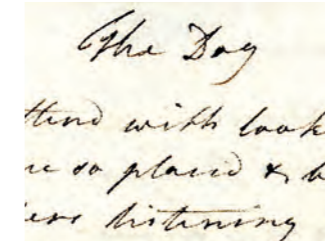 The Dog
ttend with look
ne so placid & b
ers listening